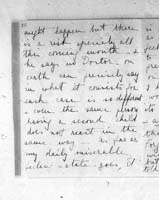 might happen but there
is a risk specially all
this coming month - &
he says no Doctor on
earth can precisely say
in what it consists for
each case is so different
- even the same person
having a second child
does not react in the
same way - as far as
my daily miserable
state goes it